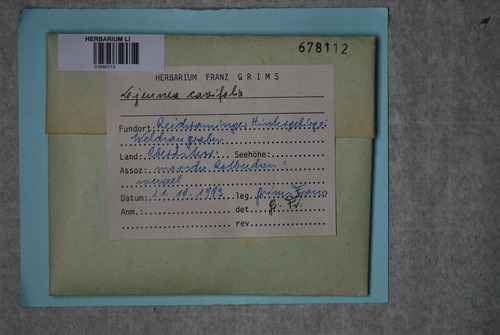 HERBARIUM LI
678112
HERBARIUM FRANZ GRIMS
Lejeunea cavifolia
Fundort: Reichraminger Hintergebirge:
Land: Oberösterr. Seehöhe:
Assoz: morsche
Datum: 11.10.1993 leg. Grims Franz
Anm.: det. Gr. Fr.
rev.